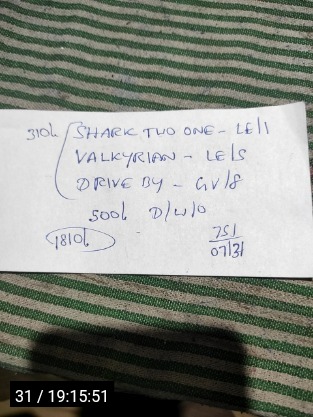 310L SHARK TWO ONE - LE/1
VALKYRIAN - LE/S
DRIVE BY - GV/8
500L D/W/O
1810L
751
07/31
31 / 19:15:51